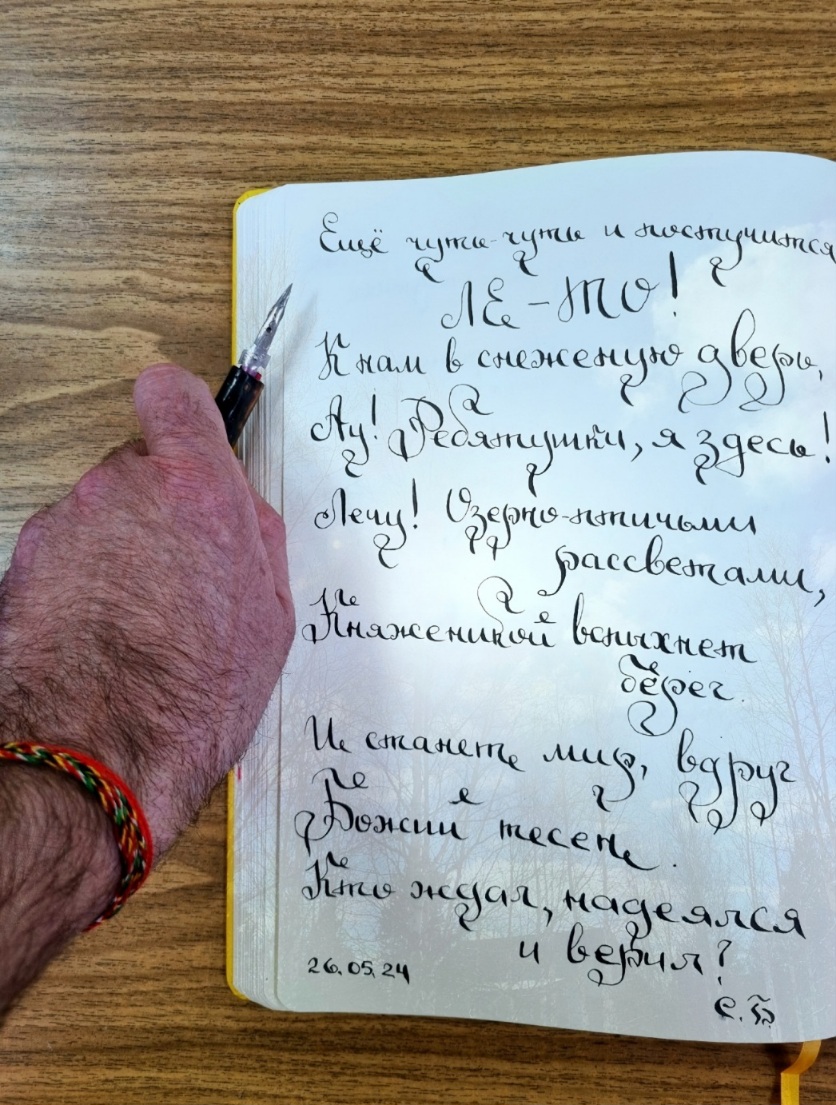 Ещё чуть-чуть и постучится
ЛЕ-ТО!
К нам в снеженую дверь,
Ау! Ребятушки, я здесь!
Лечу! Озерно-птичьими
рассветами,
Княженикой вспыхнет
берег.
И станет мир, вдруг
Божий тесен.
Кто ждал, надеялся
и верил?
26.05.24
С.Б.